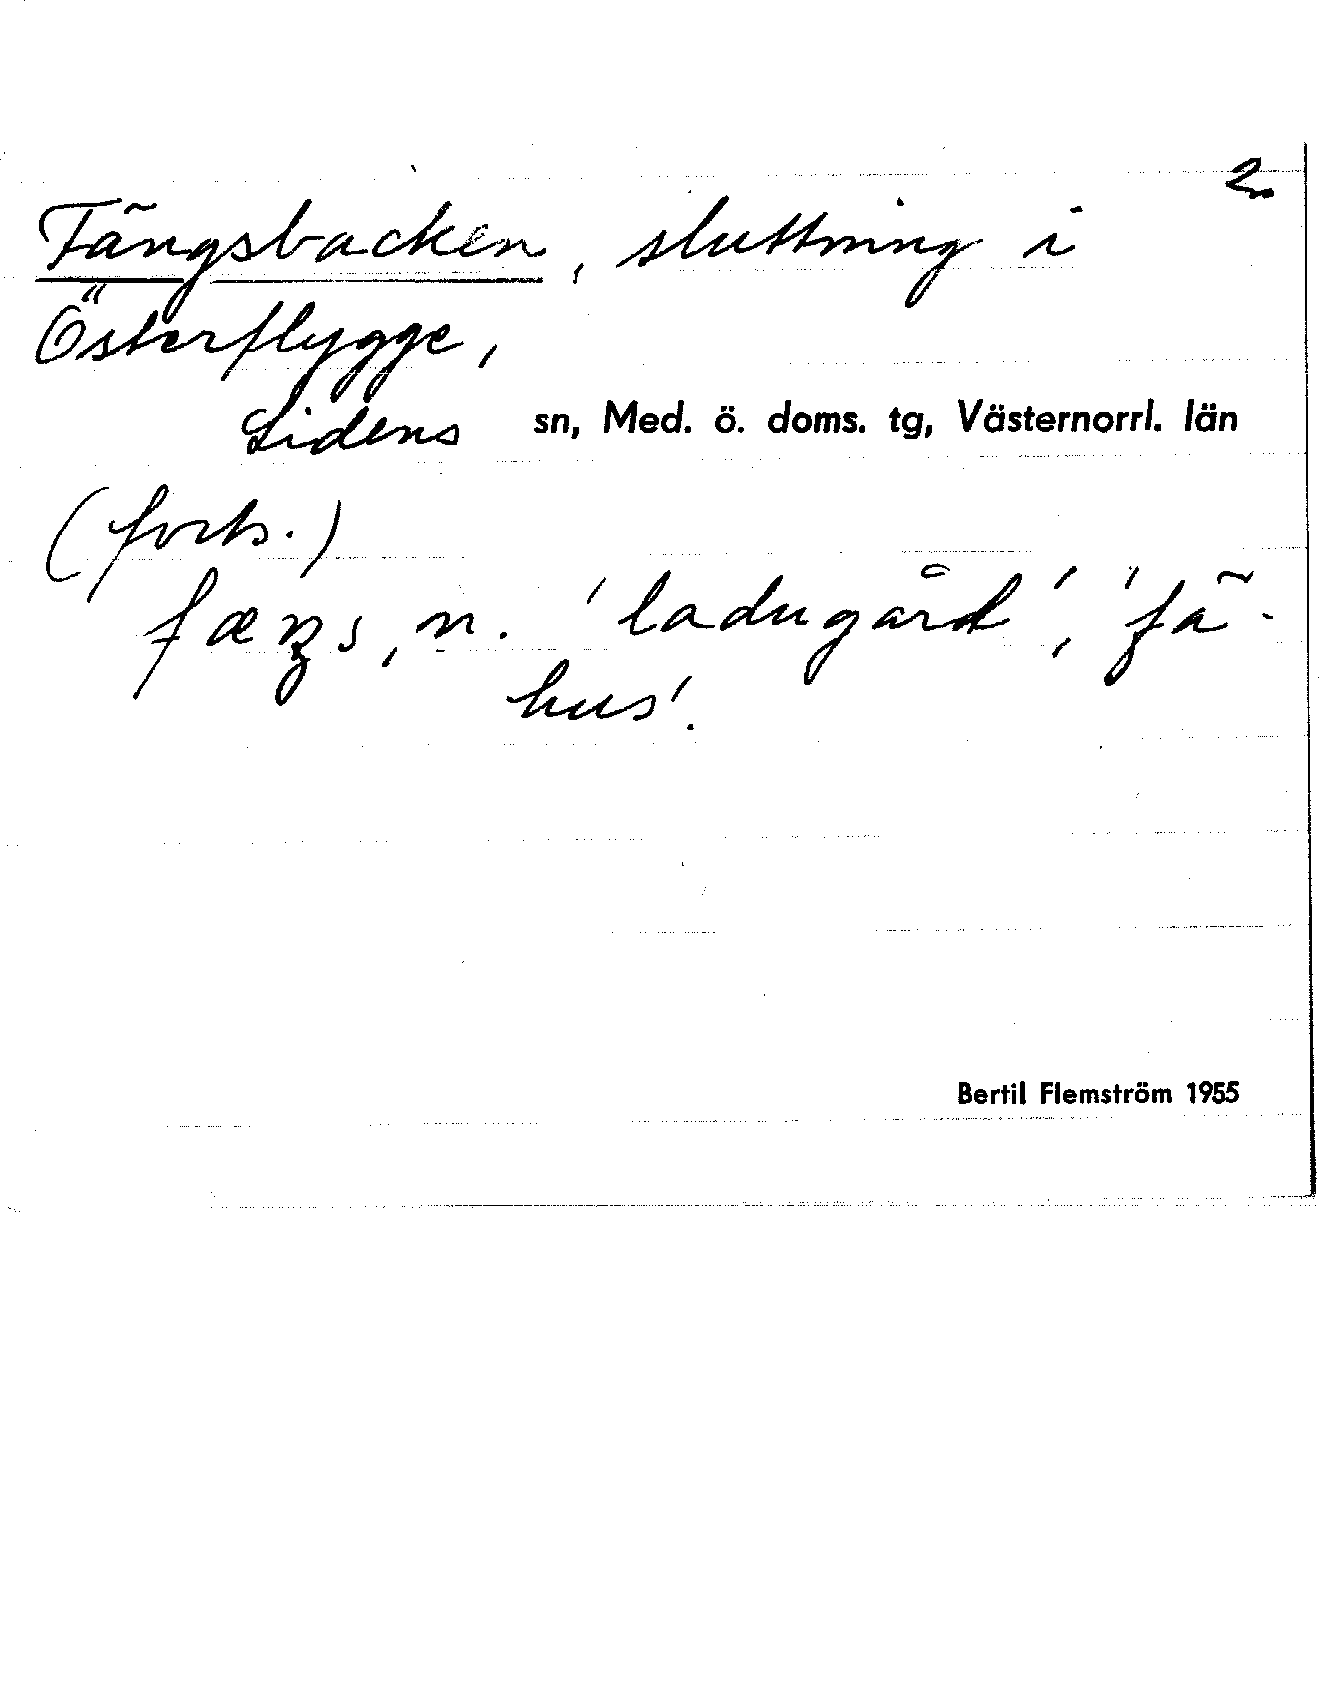 2.
Fängsbacken, sluttning i
Österflygge,
Lidens sn, Med. ö. doms. tg, Västernorrl. län
(forts.)
n. 'ladugård', 'fä-
hus'.
Bertil Flemström 1955